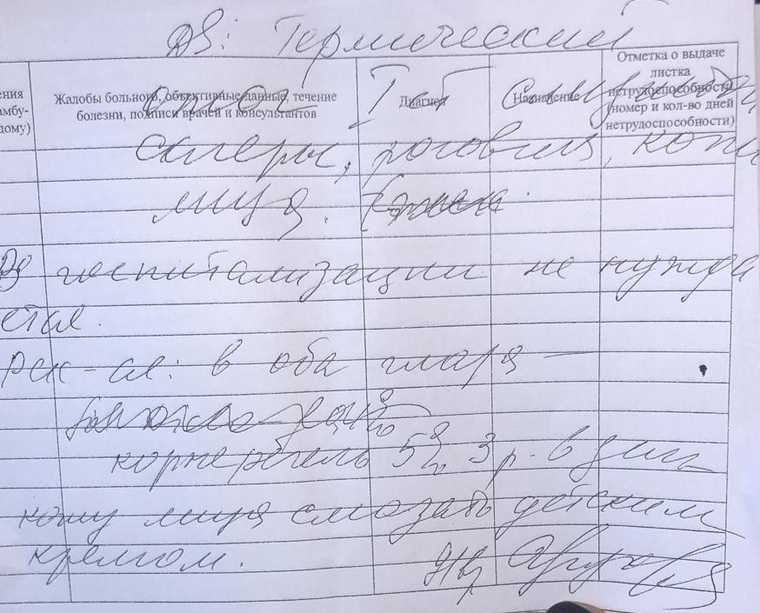 DS: Термический
ения
амбу-
дому)
Жалобы больного, объективные данные, течение
болезни, подписи врачей и консультантов
Диагноз
Назначение
Отметка о выдаче
листка
нетрудоспособности
(номер и кол-во дней
нетрудоспособности)
ожог I ст слизистой,
склеры, роговиц, кожи
лица.
В госпитализации не нужда
ется.
Рек-ся: в оба глаза —
корнерегель 5% 3 р. в день
кожу лица смазать детским
кремом.